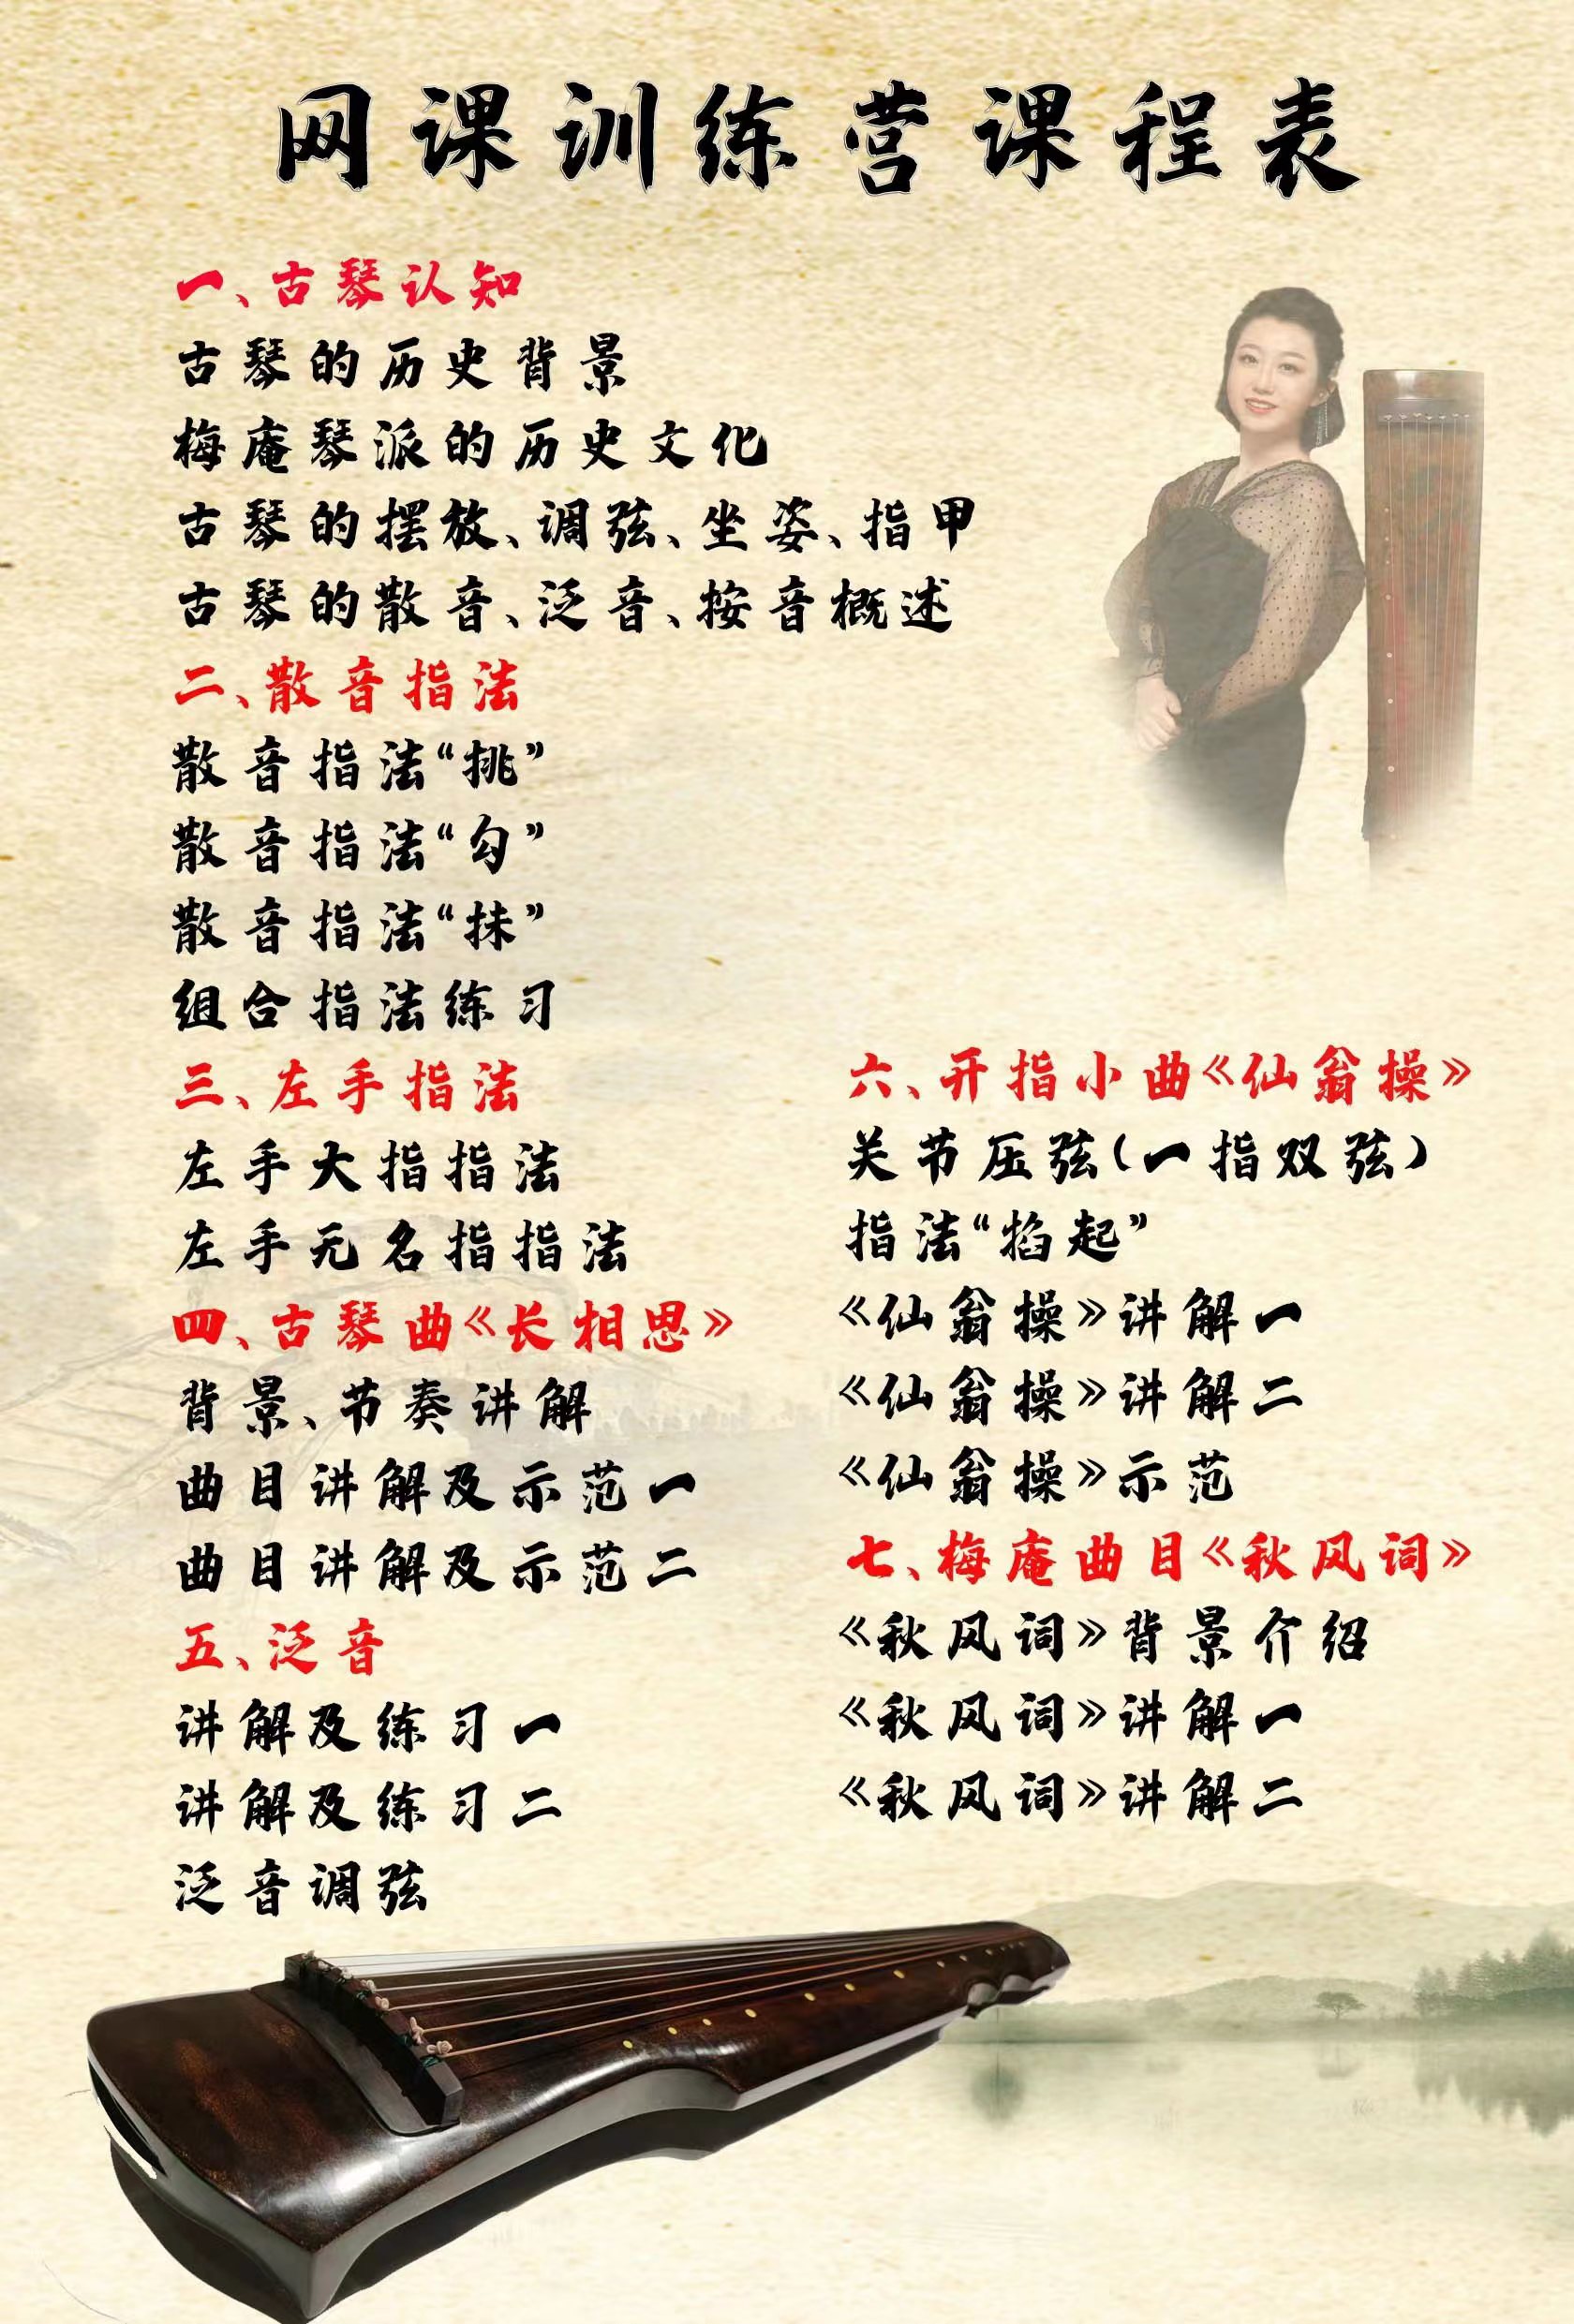 网课训练营课程表
一、古琴认知
古琴的历史背景
梅庵琴派的历史文化
古琴的摆放、调弦、坐姿、指甲
古琴的散音、泛音、按音概述
二、散音指法
散音指法“挑”
散音指法“勾”
散音指法“抹”
组合指法练习
三、左手指法
左手大指指法
左手无名指指法
四、古琴曲《长相思》
背景、节奏讲解
曲目讲解及示范一
曲目讲解及示范二
五、泛音
讲解及练习一
讲解及练习二
泛音调弦
六、开指小曲《仙翁操》
关节压弦(一指双弦)
指法“掐起”
《仙翁操》讲解一
《仙翁操》讲解二
《仙翁操》示范
七、梅庵曲目《秋风词》
《秋风词》背景介绍
《秋风词》讲解一
《秋风词》讲解二